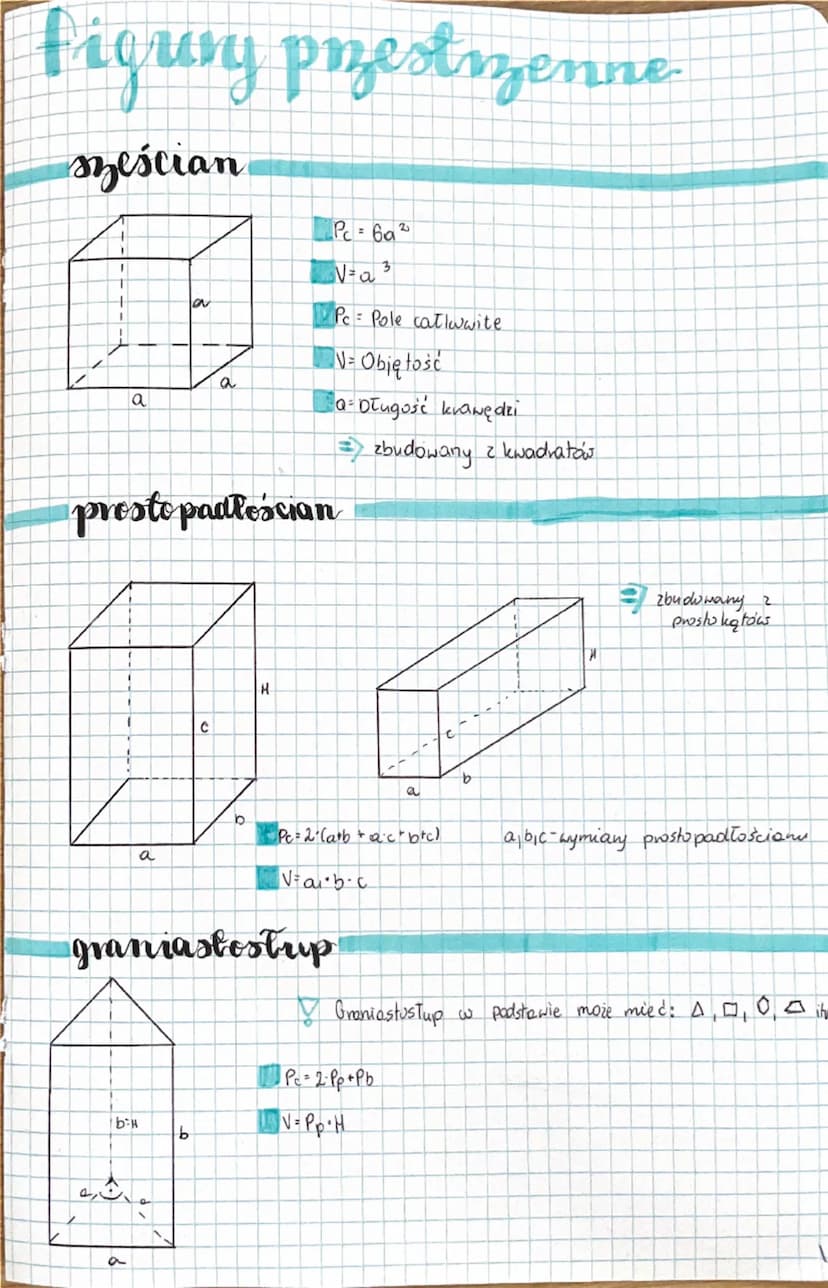 figury przestrzenne
sześcian
Pc = 6a²
V=a³
a
Pc = Pole całkwite
V= Objętość
a
a=Długość krawędzi
a
⇒ zbudowany z kwadratów
prostopadłościan
⇒ zbudowany z
prostokątów
H
H
c
c
b
a
b
Pc=2·(a+b + a·c + b+c)
a,b,c-wymiary prostopadłościanu
a
V=a·b·c
graniastosłup
! Graniastosłup w podstawie może mieć: △, □, ⬯, ⏢ itp
Pc=2·Pp+Pb
b=H
V=Pp·H
b
a
a
a